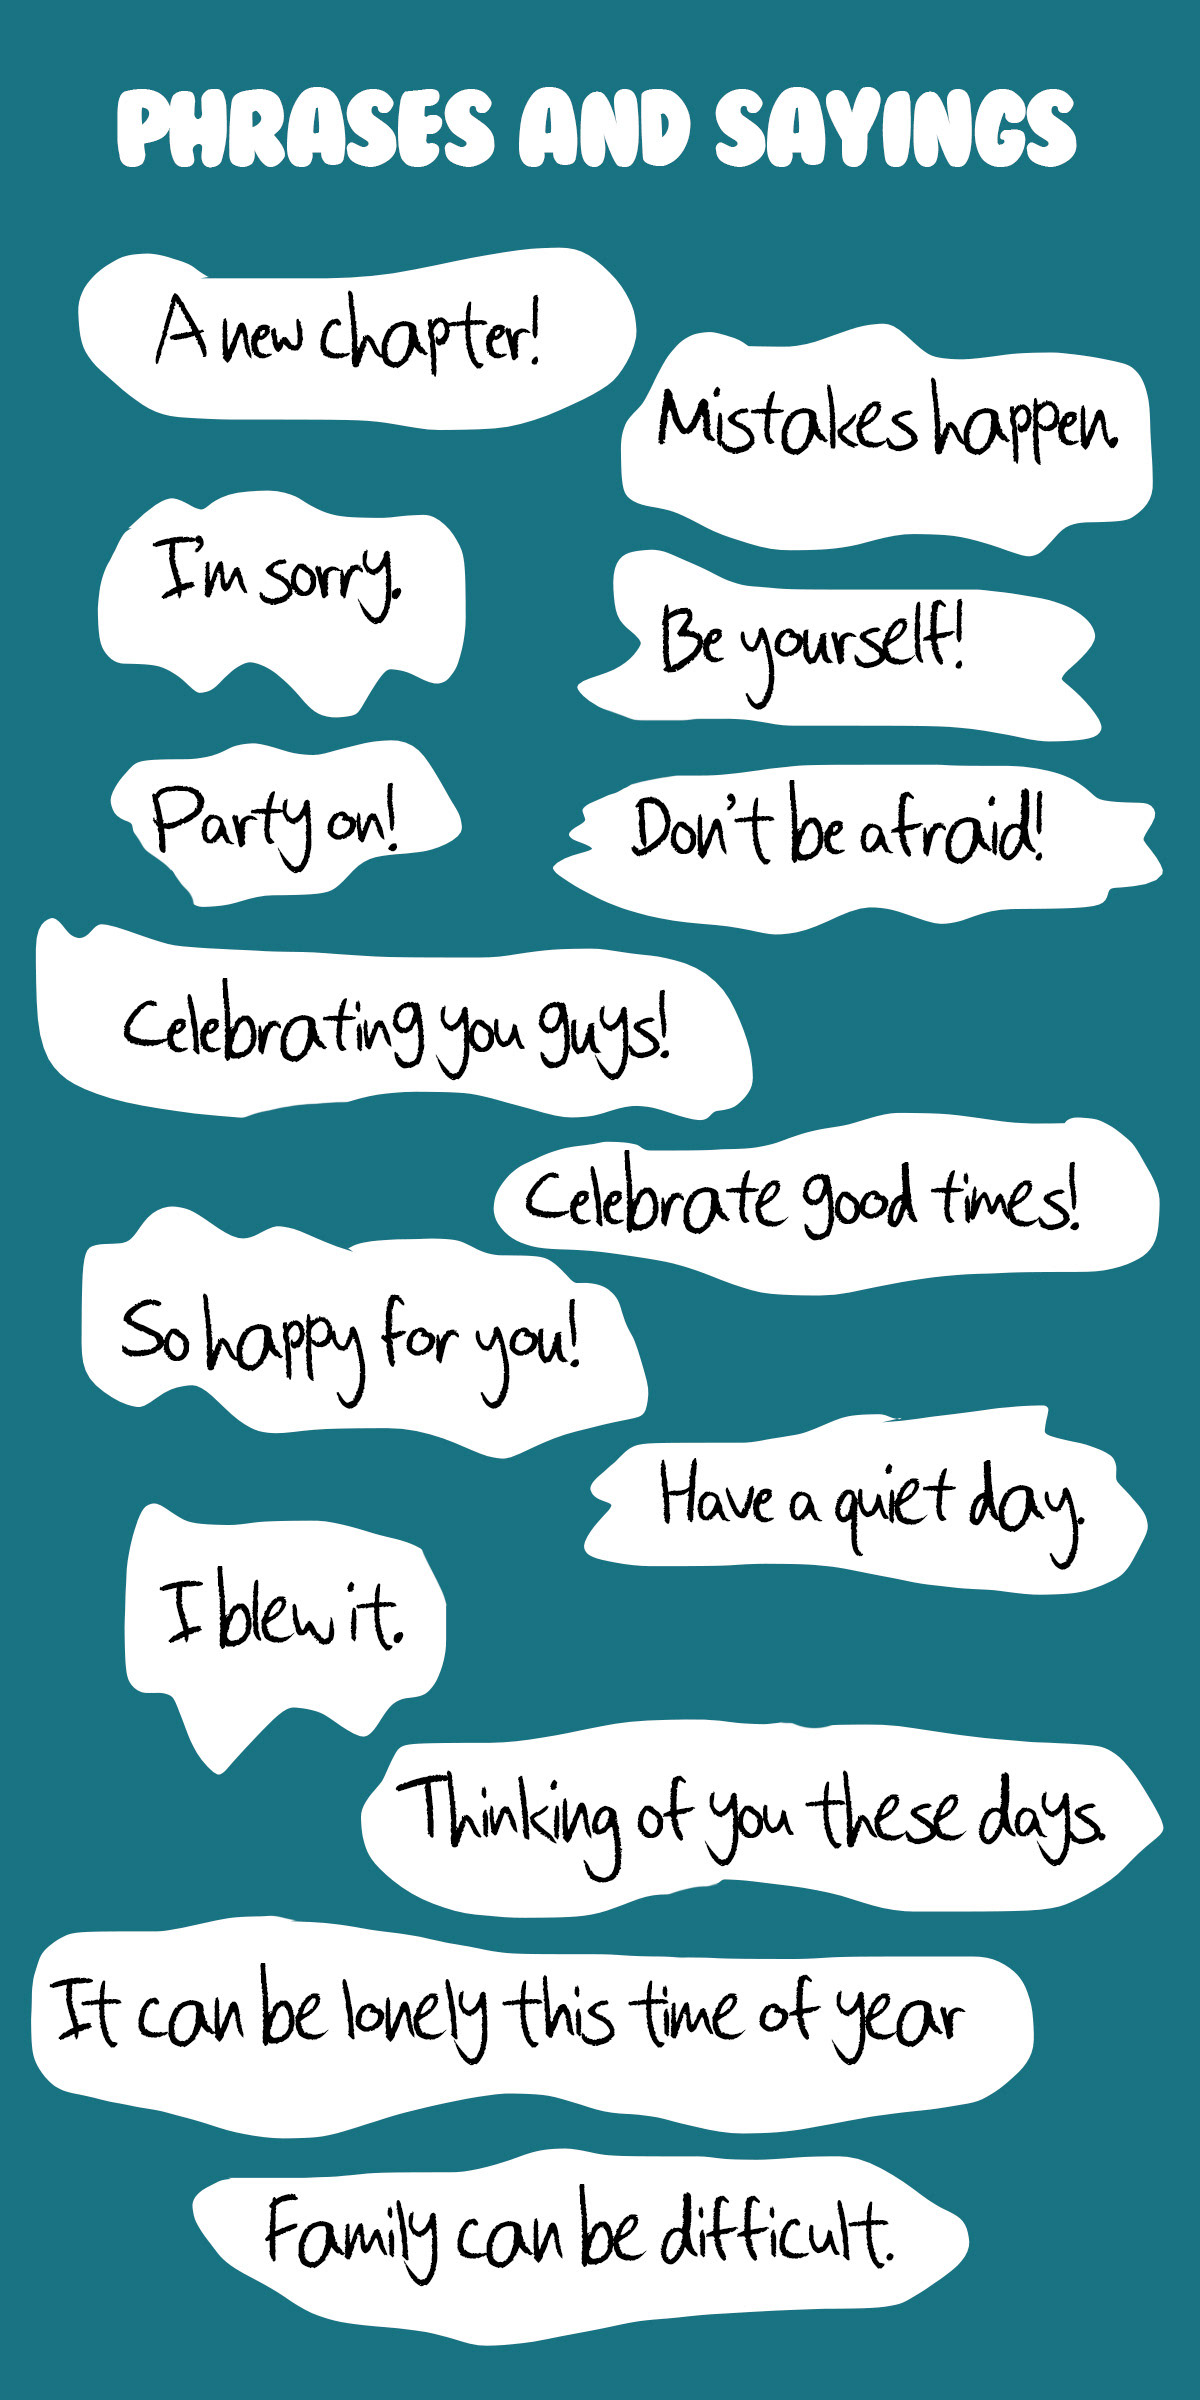 PHRASES AND SAYINGS
A new chapter!
Mistakes happen.
I'm sorry.
Be yourself!
Party on!
Don't be afraid!
Celebrating you guys!
Celebrate good times!
So happy for you!
Have a quiet day.
I blew it.
Thinking of you these days.
It can be lonely this time of year
Family can be difficult.